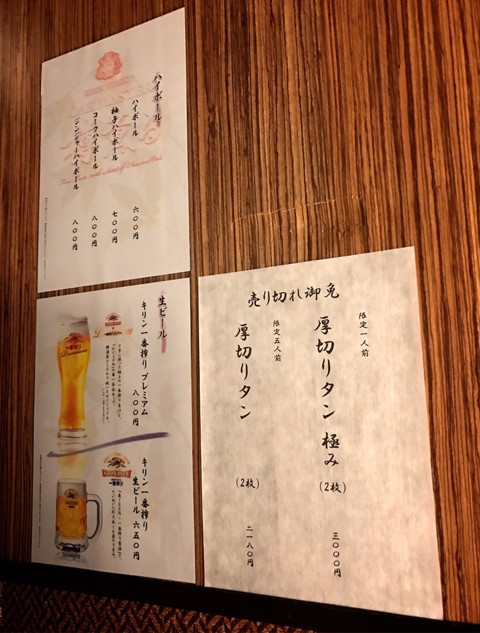 ハイボール
ハイボール 六〇〇円
柚子ハイボール 七〇〇円
コークハイボール 八〇〇円
ジンジャーハイボール 八〇〇円
生ビール
キリン一番搾り プレミアム 八〇〇円
キリン一番搾り
生ビール 六五〇円
売り切れ御免
限定一人前
厚切りタン 極み (2枚) 三〇〇〇円
限定五人前
厚切りタン (2枚) 二一八〇円